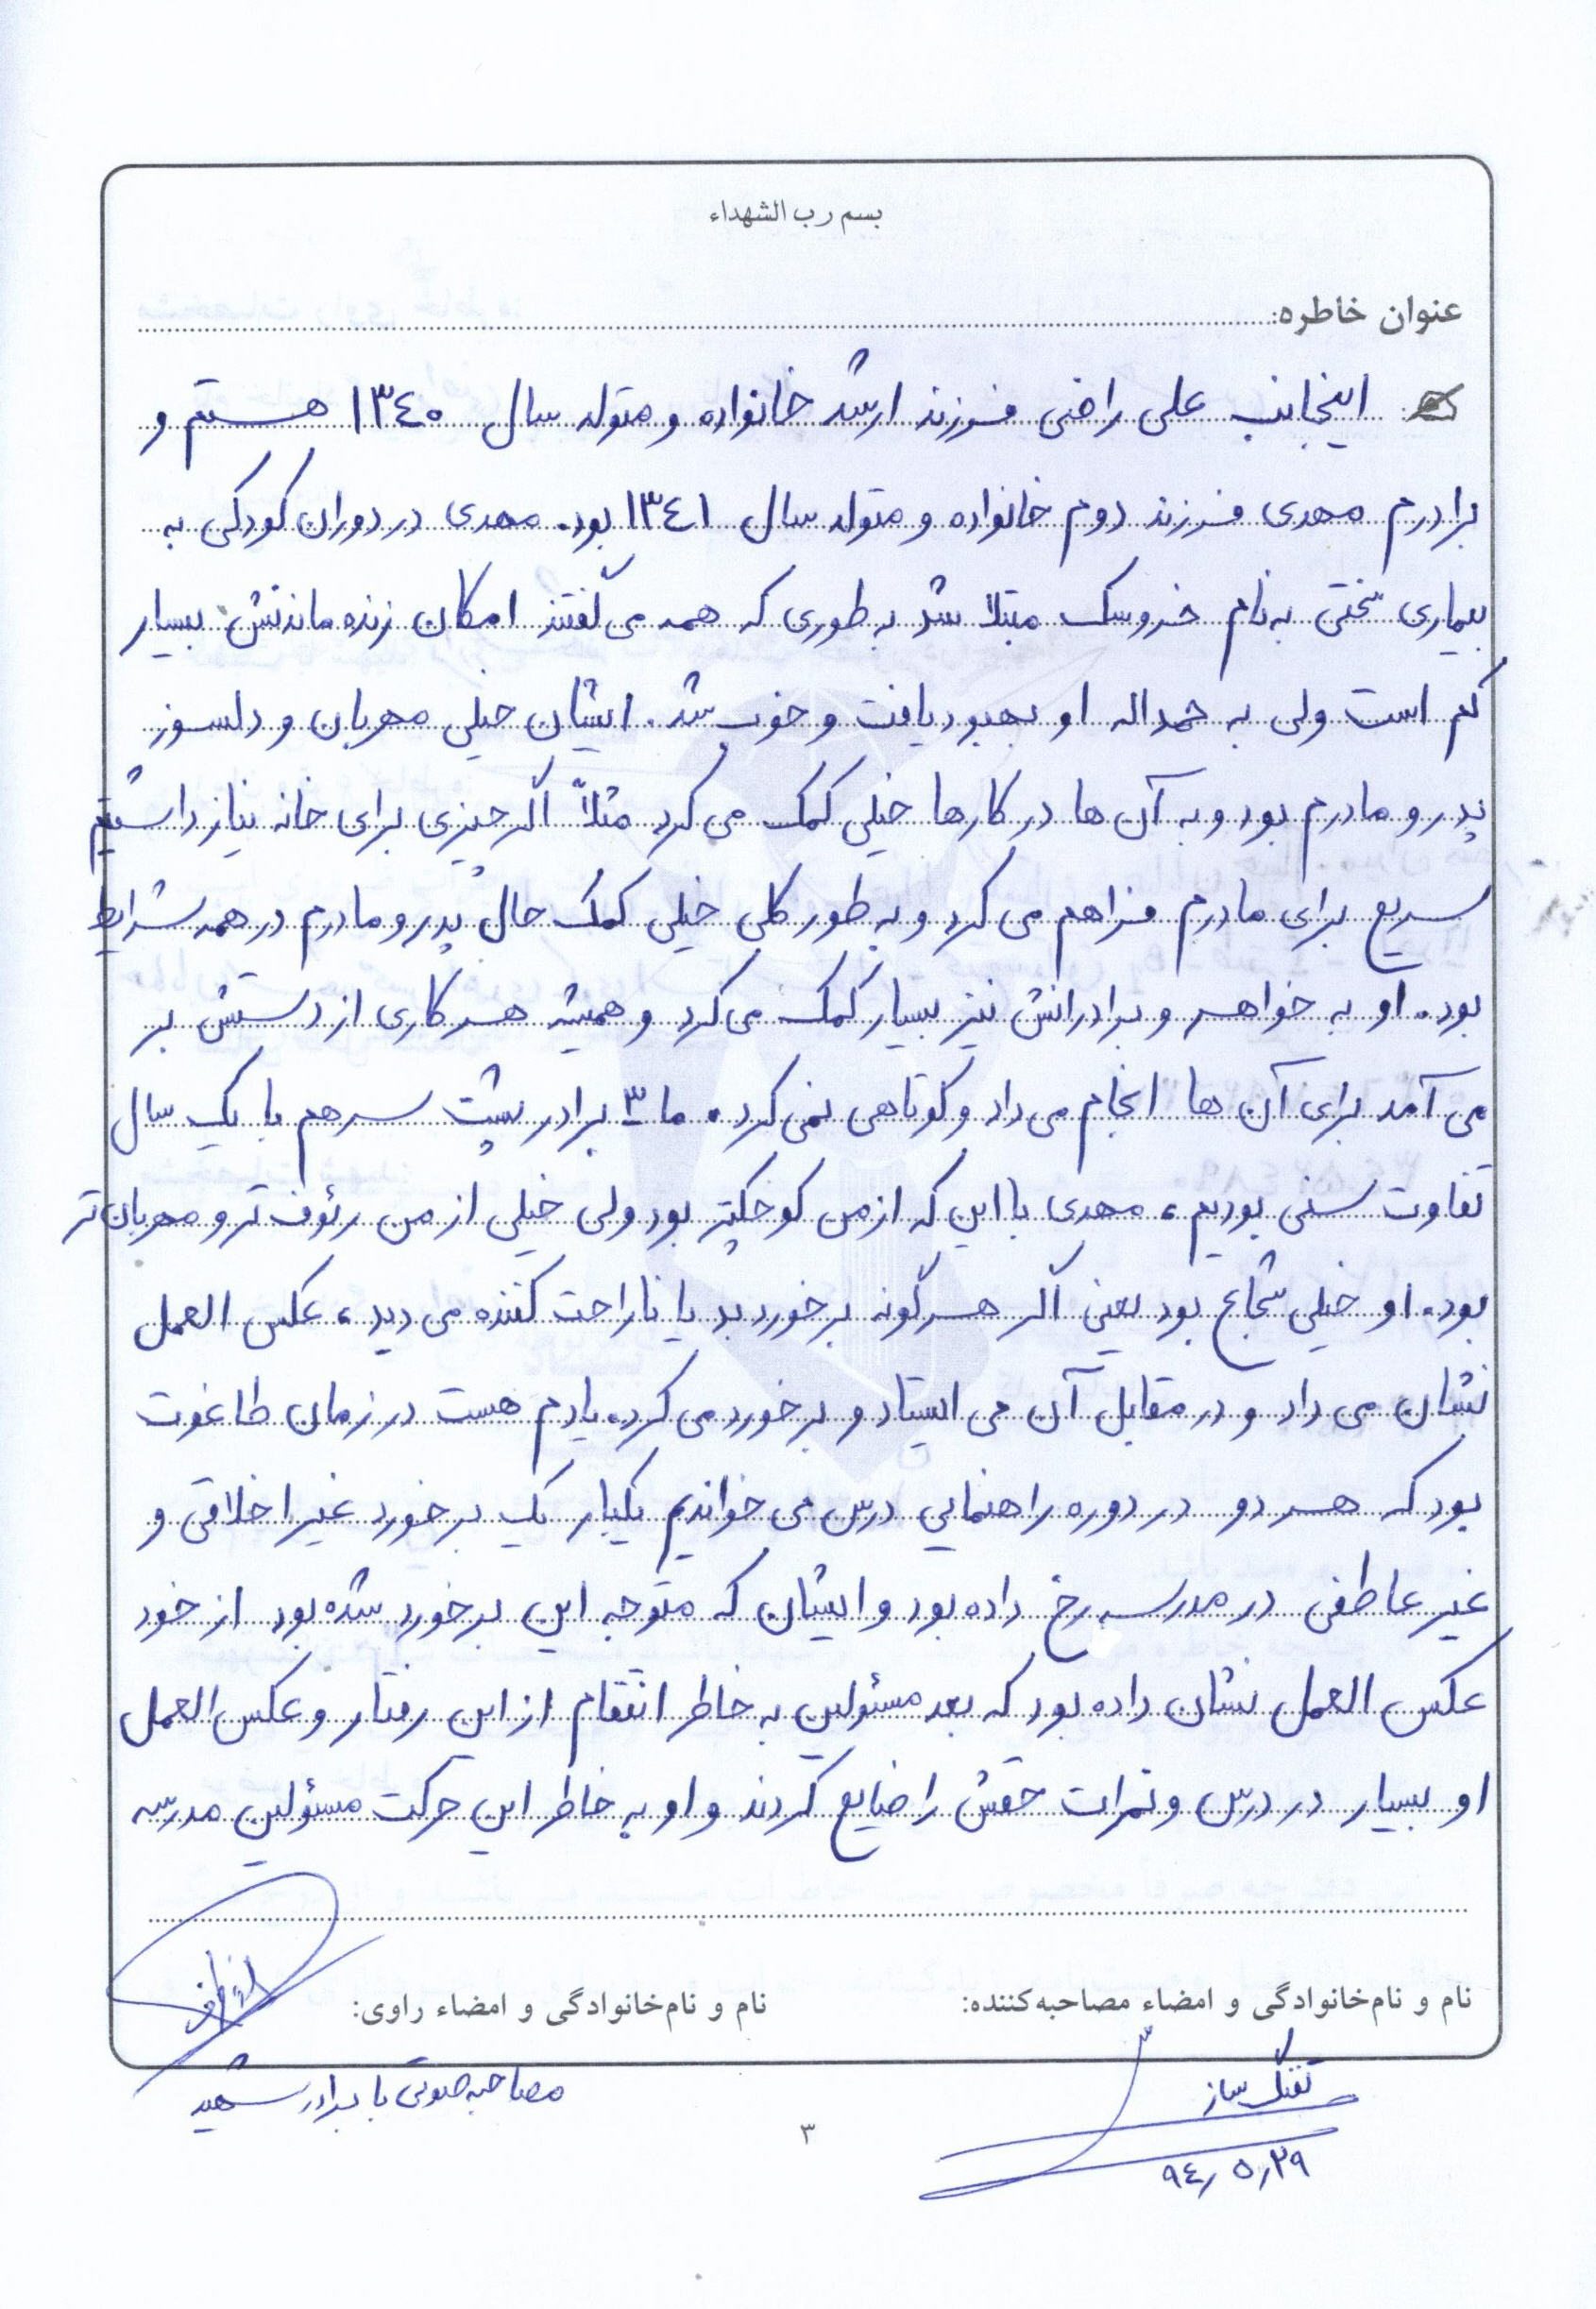 بسم رب الشهداء
عنوان خاطره:
اینجانب علی راضی فرزند ارشد خانواده و متولد سال ۱۳۴۰ هستم و
برادرم مهدی فرزند دوم خانواده و متولد سال ۱۳۴۱ بود. مهدی در دوران کودکی به
بیماری سختی به نام خروسک مبتلا شد به طوری که همه می گفتند امکان زنده ماندنش بسیار
کم است ولی به حمداله او بهبود یافت و خوب شد. ایشان خیلی مهربان و دلسوز
پدر و مادرم بود و به آن ها در کارها خیلی کمک می کرد مثلاً اگر چیزی برای خانه نیاز داشتیم
سریع برای مادرم فراهم می کرد و به طور کلی خیلی کمک حال پدر و مادرم در همه شرایط
بود. او به خواهر و برادرانش نیز بسیار کمک می کرد و همیشه هر کاری از دستش بر
می آمد برای آن ها انجام می داد و کوتاهی نمی کرد. ما ۳ برادر پشت سر هم با یک سال
تفاوت سنی بودیم، مهدی با این که از من کوچکتر بود ولی خیلی از من رئوف تر و مهربان تر
بود. او خیلی شجاع بود یعنی اگر هرگونه برخورد بد یا ناراحت کننده می دید، عکس العمل
نشان می داد و در مقابل آن می ایستاد و برخورد می کرد. یادم هست در زمان طاغوت
بود که هر دو در دوره راهنمایی درس می خواندیم یکبار یک برخورد غیر اخلاقی و
غیر عاطفی در مدرسه رخ داده بود و ایشان که متوجه این برخورد شده بود از خود
عکس العمل نشان داده بود که بعد مسئولین به خاطر انتقام از این رفتار و عکس العمل
او بسیار در درس و نمرات حقش را ضایع کردند و او به خاطر این حرکت مسئولین مدرسه
نام و نام‌خانوادگی و امضاء مصاحبه‌کننده: نام و نام‌خانوادگی و امضاء راوی:
تفنگ ساز
مصاحبه صوتی با برادر شهید
۹۴/۵/۲۹
۳